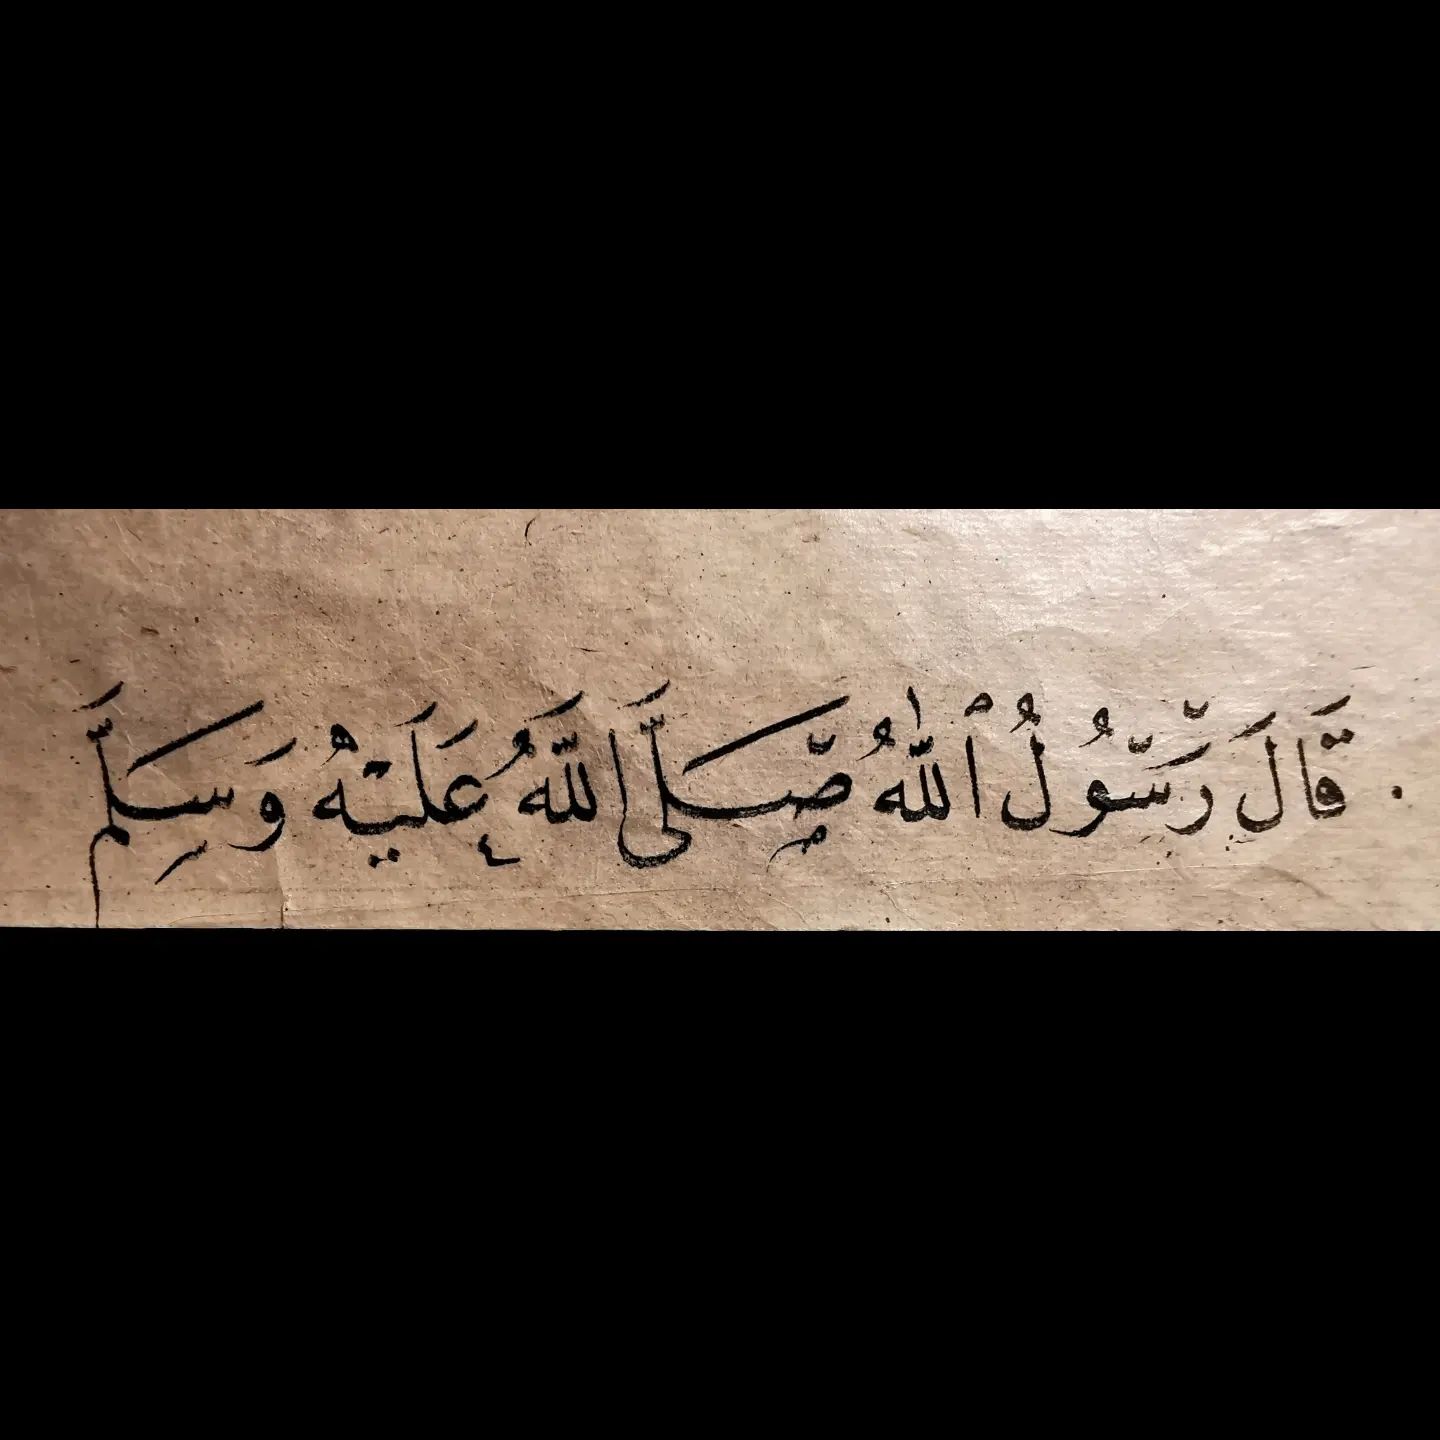 قَالَ رَسُّولُ ٱللّٰهُ صَّلَّى اللَّهُ عَلَيْهُ وَسَلَّمَ